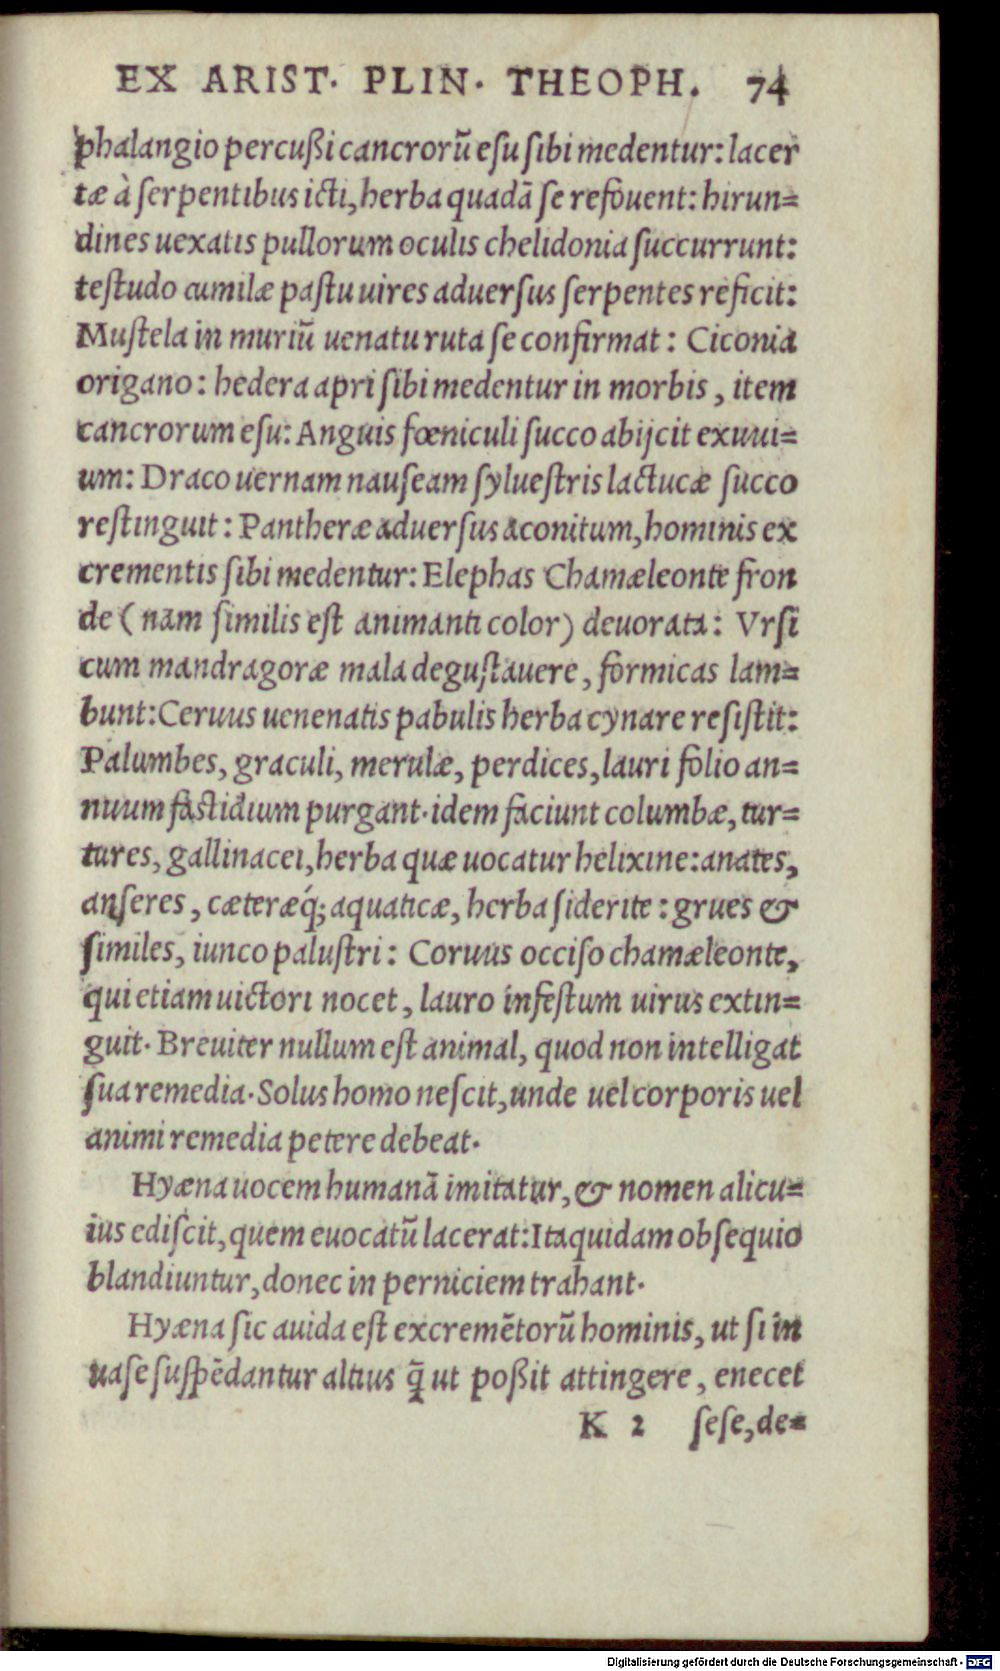 EX ARIST. PLIN. THEOPH. 74
phalangio percußi cancrorũ esu sibi medentur: lacer
tæ à serpentibus icti, herba quadã se refouent: hirun=
dines uexatis pullorum oculis chelidonia succurrunt:
testudo cumilæ pastu uires aduersus serpentes reficit:
Mustela in muriũ uenatu ruta se confirmat: Ciconia
origano: hedera apri sibi medentur in morbis, item
cancrorum esu: Anguis fœniculi succo abijcit exuui=
um: Draco uernam nauseam syluestris lactucæ succo
restinguit: Pantheræ aduersus aconitum, hominis ex
crementis sibi medentur: Elephas Chamæleonte fron
de (nam similis est animanti color) deuorata: Vrsi
cum mandragoræ mala degustauere, formicas lam=
bunt: Ceruus uenenatis pabulis herba cynare resistit:
Palumbes, graculi, merulæ, perdices, lauri folio an=
nuum fastidium purgant. idem faciunt columbæ, tur=
tures, gallinacei, herba quæ uocatur helixine: anates,
anseres, cæteræq́; aquaticæ, herba siderite: grues &
similes, iunco palustri: Coruus occiso chamæleonte,
qui etiam uictori nocet, lauro infestum uirus extin=
guit. Breuiter nullum est animal, quod non intelligat
sua remedia. Solus homo nescit, unde uel corporis uel
animi remedia petere debeat.
Hyæna uocem humanã imitatur, & nomen alicu=
ius ediscit, quem euocatũ lacerat: Ita quidam obsequio
blandiuntur, donec in perniciem trahant.
Hyæna sic auida est excremẽtorũ hominis, ut si in
uase suspẽdantur altius q̃ ut poßit attingere, enecet
K 2 sese, de=
Digitalisierung gefördert durch die Deutsche Forschungsgemeinschaft - DFG